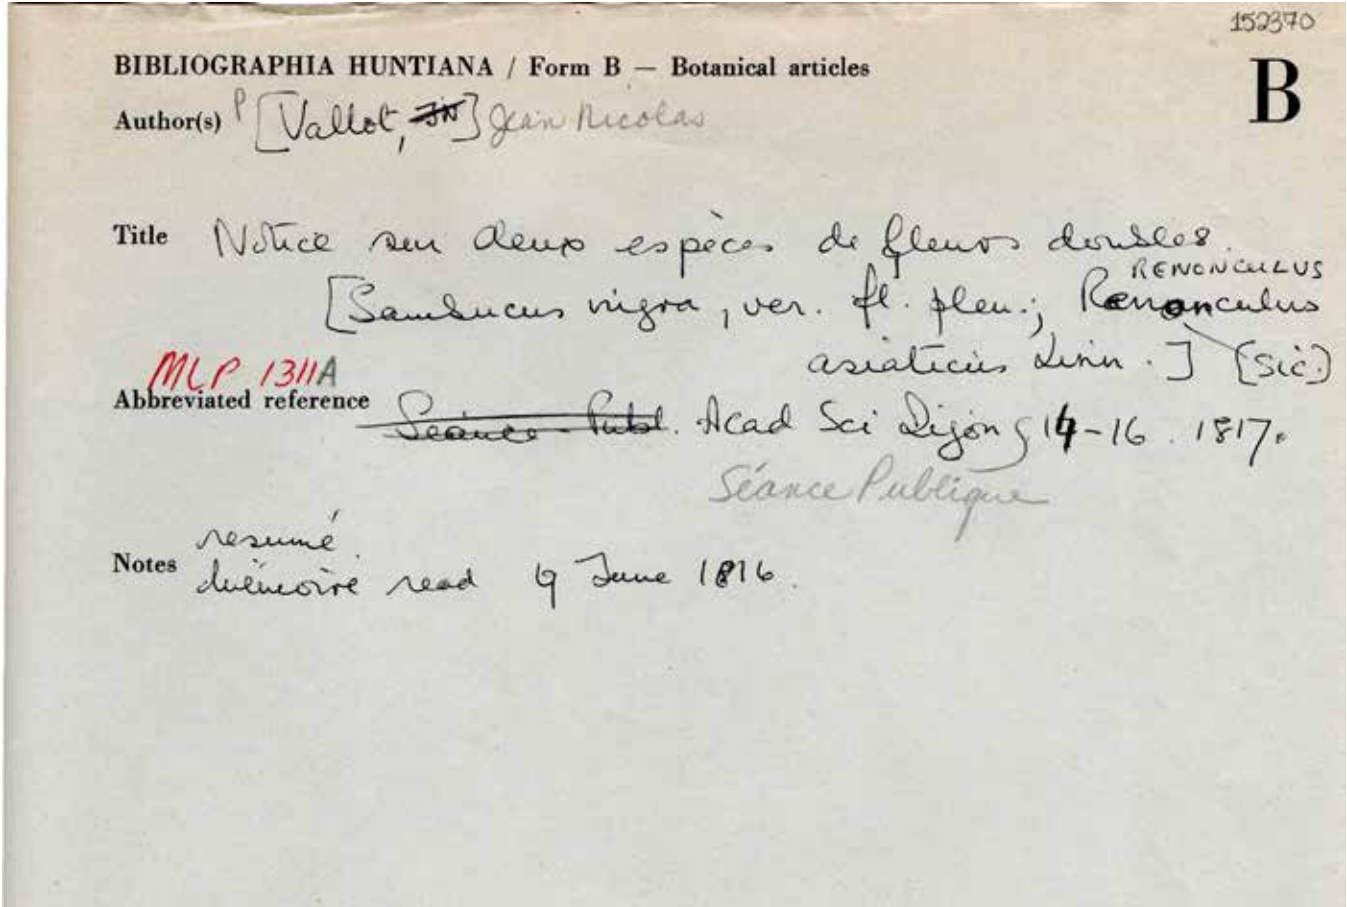 152370
BIBLIOGRAPHIA HUNTIANA / Form B — Botanical articles
B
Author(s) P [Vallot, JN] Jean Nicolas
Title Notice sur deux espèces de fleurs doubles.
RENONCULUS
[Sambucus nigra, ver. fl. plen.; Renonculus
asiaticus Linn.] [sic.]
MLP 1311A
Abbreviated reference Séance Publ. Acad Sci Dijon 14-16. 1817.
Séance Publique
resumé.
Notes mémoire read 9 June 1816.